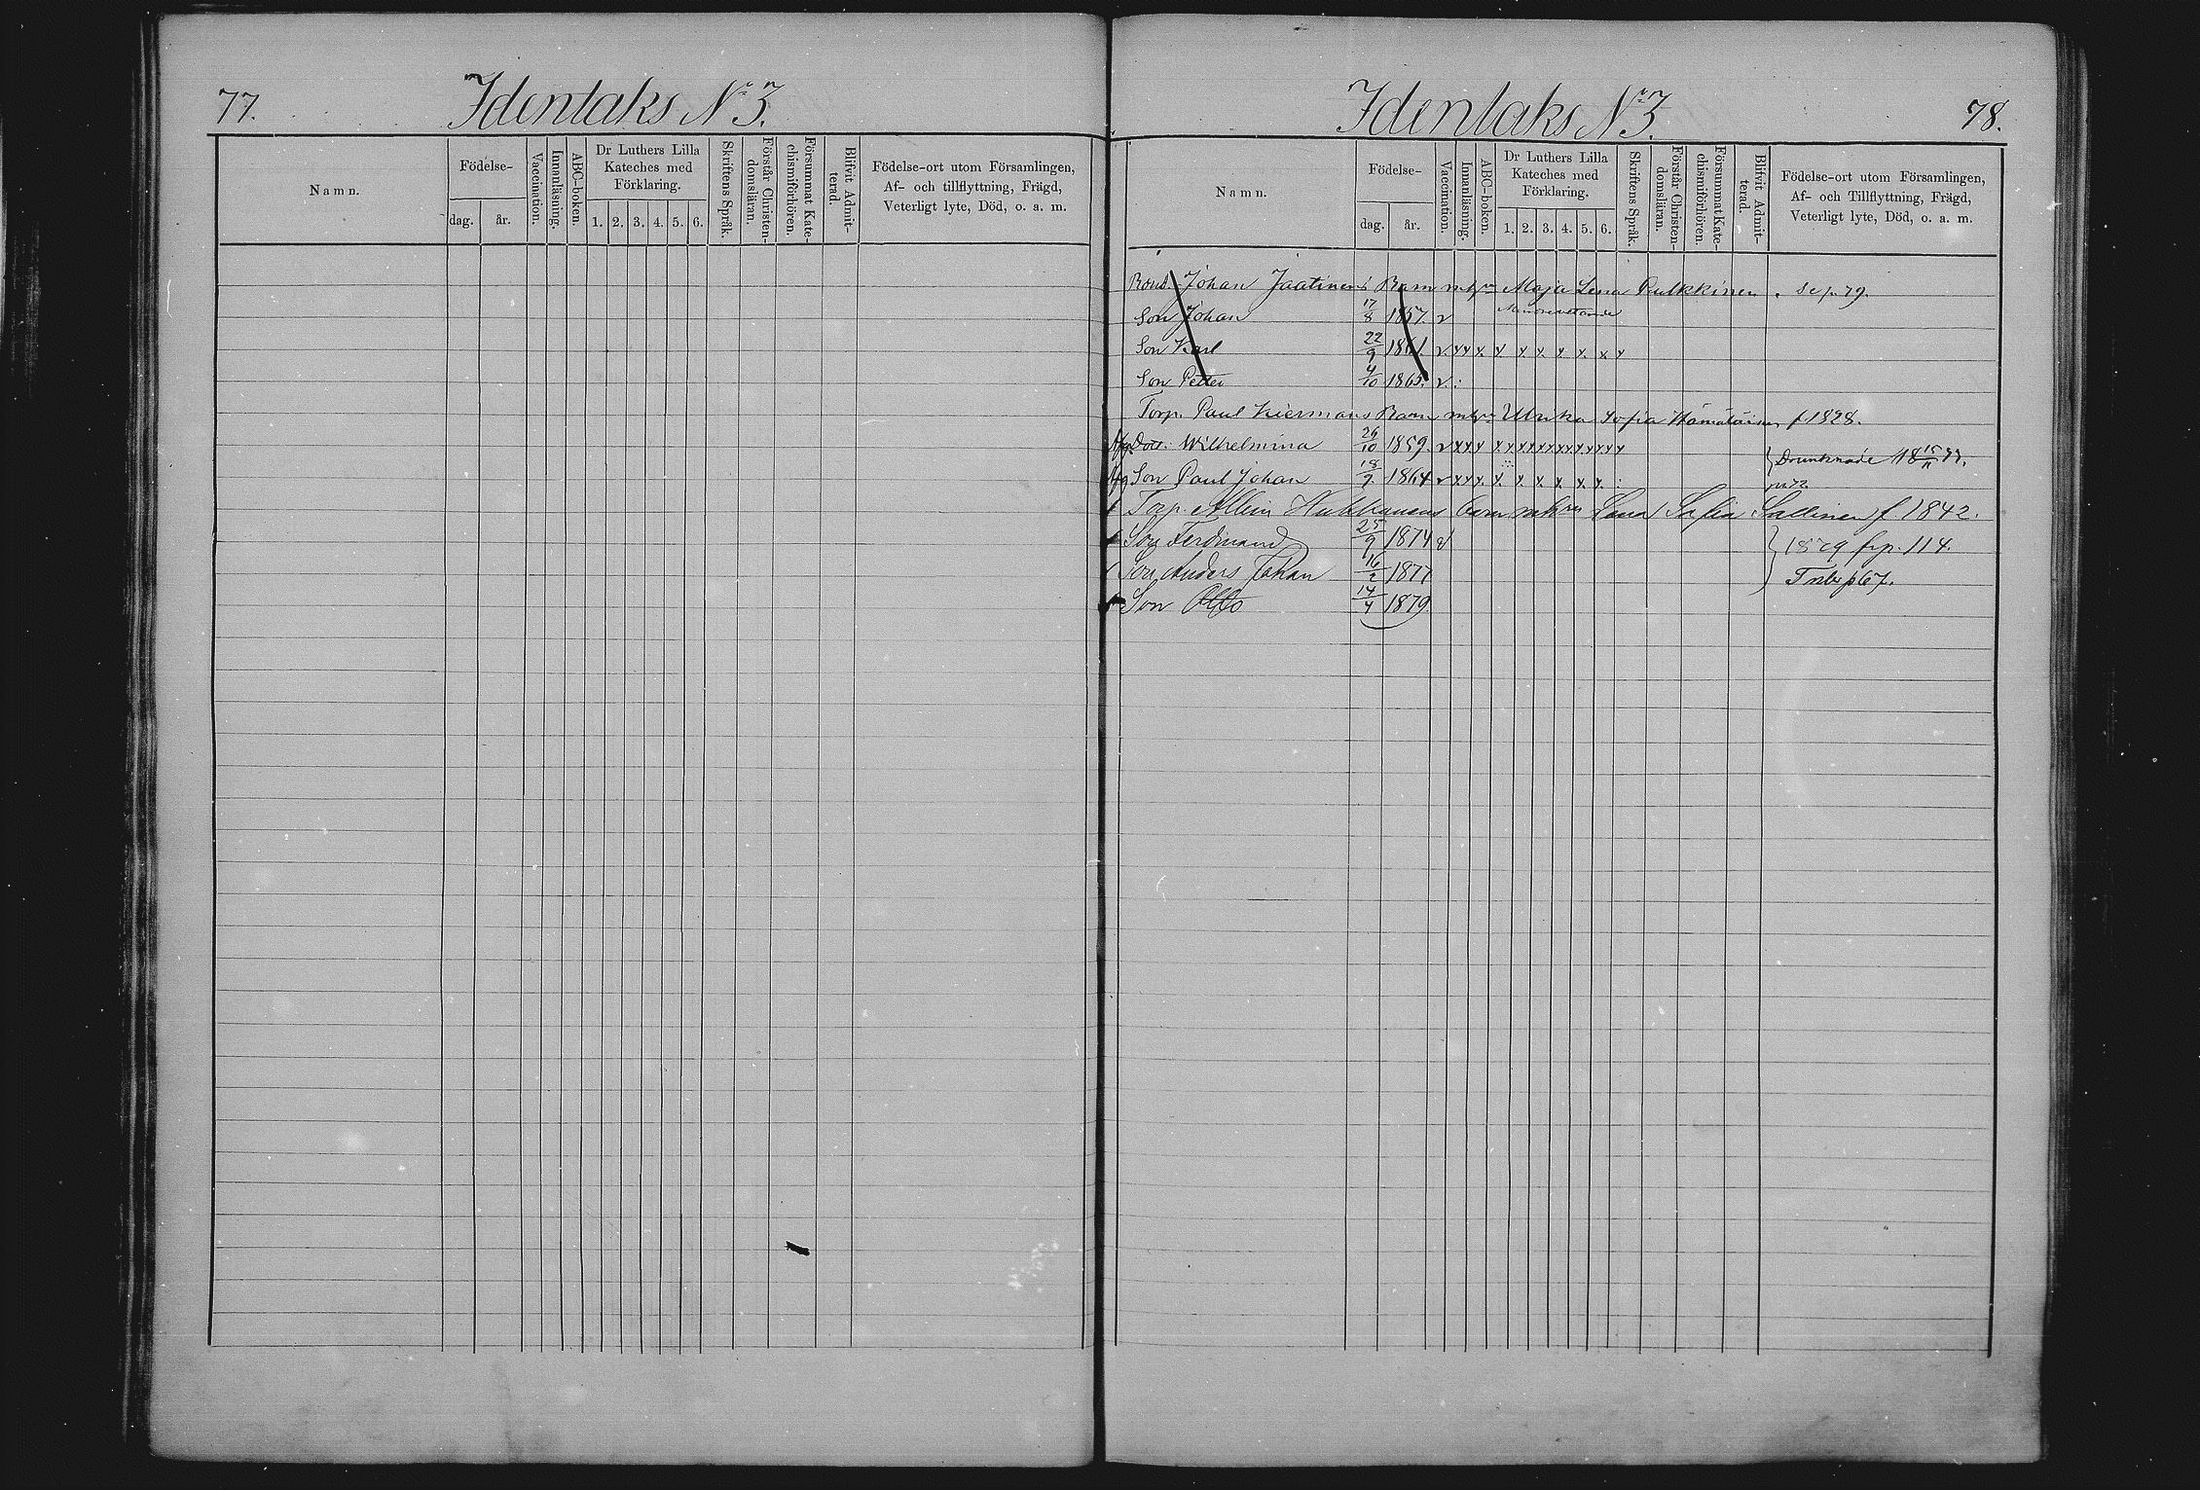 77.
Identaks No 3.
Namn.
Födelse-
dag. år.
Vaccination.
Innanläsning.
ABC-boken.
Dr Luthers Lilla
Kateches med
Förklaring.
1. 2. 3. 4. 5. 6.
Skriftens Språk.
Förstår Christen-
domsläran.
Försummat Kate-
chismiförhören.
Blifvit Admit-
terad.
Födelse-ort utom Församlingen,
Af- och tillflyttning, Frägd,
Veterligt lyte, Död, o. a. m.
Identaks No 3.
78.
Namn.
Födelse-
dag. år.
Vaccination.
Innanläsning.
ABC-boken.
Dr Luthers Lilla
Kateches med
Förklaring.
1. 2. 3. 4. 5. 6.
Skriftens Språk.
Förstår Christen-
domsläran.
Försummat Kate-
chismiförhören.
Blifvit Admit-
terad.
Födelse-ort utom Församlingen,
Af- och Tillflyttning, Frägd,
Veterligt lyte, Död, o. a. m.
Bond. Johan Jaatinens Barn Maja Lena Pulkkinen. Se p. 79.
Son Johan 17/8 1857. v
Son Karl 22/9 1861 v x x x x x x x x x x
Son Petter 4/10 1865. v
Torp. Paul Barn Ulrika Sofia Hämäläinen f 1828.
Wilhelmina 26/10 1859. v x x x x x x x x x x x x x x
Drunknade 18 15/11 77.
Son Paul Johan 18/7 1864 v x x x x x x x x x
Torp. Barn Lena Sofia Sallinen f 1842.
Son Ferdinand 25/9 1874 v
1879 frp. 114.
Son Anders Johan 16/2 1877
Son Otto 14/4 1879